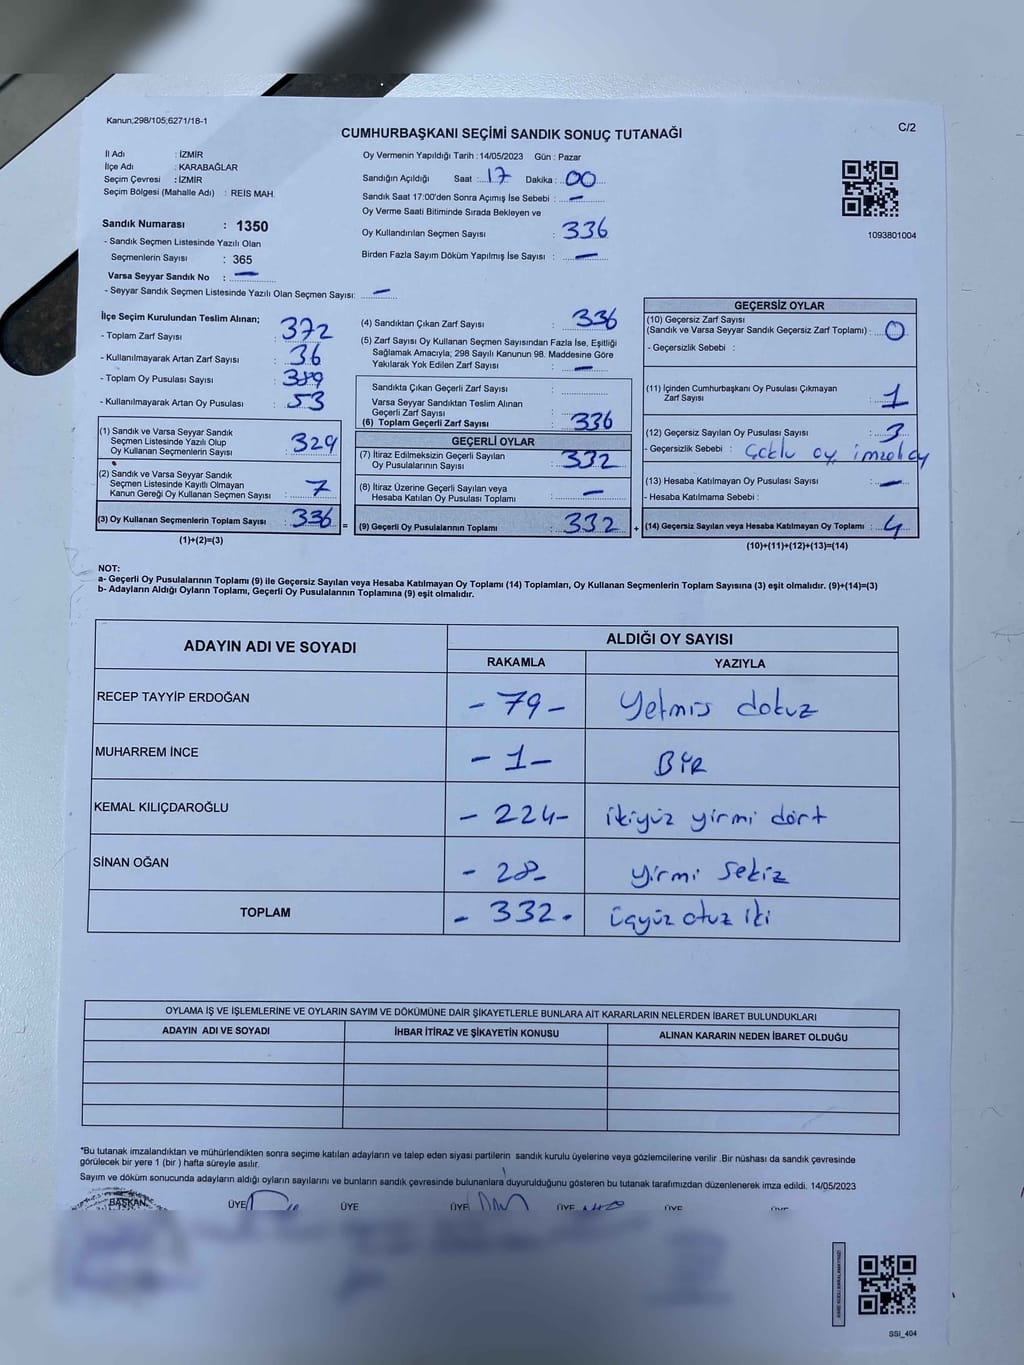 Kanun;298/105;6271/18-1
C/2
CUMHURBAŞKANI SEÇİMİ SANDIK SONUÇ TUTANAĞI
İl Adı : İZMİR
İlçe Adı : KARABAĞLAR
Seçim Çevresi : İZMİR
Seçim Bölgesi (Mahalle Adı) : REİS MAH.
Sandık Numarası : 1350
- Sandık Seçmen Listesinde Yazılı Olan
Seçmenlerin Sayısı : 365
Varsa Seyyar Sandık No : —
- Seyyar Sandık Seçmen Listesinde Yazılı Olan Seçmen Sayısı: —
Oy Vermenin Yapıldığı Tarih : 14/05/2023 Gün : Pazar
Sandığın Açıldığı Saat : 17 Dakika : 00
Sandık Saat 17:00'den Sonra Açımış İse Sebebi : —
Oy Verme Saati Bitiminde Sırada Bekleyen ve
Oy Kullandırılan Seçmen Sayısı : 336
Birden Fazla Sayım Döküm Yapılmış İse Sayısı : —
1093801004
İlçe Seçim Kurulundan Teslim Alınan;
- Toplam Zarf Sayısı : 372
- Kullanılmayarak Artan Zarf Sayısı : 36
- Toplam Oy Pusulası Sayısı : 389
- Kullanılmayarak Artan Oy Pusulası : 53
(1) Sandık ve Varsa Seyyar Sandık
Seçmen Listesinde Yazılı Olup
Oy Kullanan Seçmenlerin Sayısı : 329
(2) Sandık ve Varsa Seyyar Sandık
Seçmen Listesinde Kayıtlı Olmayan
Kanun Gereği Oy Kullanan Seçmen Sayısı : 7
(3) Oy Kullanan Seçmenlerin Toplam Sayısı : 336
(1)+(2)=(3)
(4) Sandıktan Çıkan Zarf Sayısı : 336
(5) Zarf Sayısı Oy Kullanan Seçmen Sayısından Fazla İse, Eşitliği
Sağlamak Amacıyla; 298 Sayılı Kanunun 98. Maddesine Göre
Yakılarak Yok Edilen Zarf Sayısı : —
Sandıkta Çıkan Geçerli Zarf Sayısı :
Varsa Seyyar Sandıktan Teslim Alınan
Geçerli Zarf Sayısı :
(6) Toplam Geçerli Zarf Sayısı : 336
GEÇERLİ OYLAR
(7) İtiraz Edilmeksizin Geçerli Sayılan
Oy Pusulalarının Sayısı : 332
(8) İtiraz Üzerine Geçerli Sayılan veya
Hesaba Katılan Oy Pusulası Toplamı : —
= (9) Geçerli Oy Pusulalarının Toplamı : 332 +
GEÇERSİZ OYLAR
(10) Geçersiz Zarf Sayısı
(Sandık ve Varsa Seyyar Sandık Geçersiz Zarf Toplamı) : 0
- Geçersizlik Sebebi :
(11) İçinden Cumhurbaşkanı Oy Pusulası Çıkmayan
Zarf Sayısı : 1
(12) Geçersiz Sayılan Oy Pusulası Sayısı : 3
- Geçersizlik Sebebi : Çoklu oy, imzalı oy
(13) Hesaba Katılmayan Oy Pusulası Sayısı : —
- Hesaba Katılmama Sebebi :
(14) Geçersiz Sayılan veya Hesaba Katılmayan Oy Toplamı : 4
(10)+(11)+(12)+(13)=(14)
NOT:
a- Geçerli Oy Pusulalarının Toplamı (9) ile Geçersiz Sayılan veya Hesaba Katılmayan Oy Toplamı (14) Toplamları, Oy Kullanan Seçmenlerin Toplam Sayısına (3) eşit olmalıdır. (9)+(14)=(3)
b- Adayların Aldığı Oyların Toplamı, Geçerli Oy Pusulalarının Toplamına (9) eşit olmalıdır.
ADAYIN ADI VE SOYADI
ALDIĞI OY SAYISI
RAKAMLA YAZIYLA
RECEP TAYYİP ERDOĞAN - 79 - Yetmiş dokuz
MUHARREM İNCE - 1 - BİR
KEMAL KILIÇDAROĞLU - 224 - ikiyüz yirmi dört
SİNAN OĞAN - 28 - yirmi sekiz
TOPLAM - 332 - üçyüz otuz iki
OYLAMA İŞ VE İŞLEMLERİNE VE OYLARIN SAYIM VE DÖKÜMÜNE DAİR ŞİKAYETLERLE BUNLARA AİT KARARLARIN NELERDEN İBARET BULUNDUKLARI
ADAYIN ADI VE SOYADI İHBAR İTİRAZ VE ŞİKAYETİN KONUSU ALINAN KARARIN NEDEN İBARET OLDUĞU
*Bu tutanak imzalandıktan ve mühürlendikten sonra seçime katılan adayların ve talep eden siyasi partilerin sandık kurulu üyelerine veya gözlemcilerine verilir .Bir nüshası da sandık çevresinde
görülecek bir yere 1 (bir ) hafta süreyle asılır.
Sayım ve döküm sonucunda adayların aldığı oyların sayılarını ve bunların sandık çevresinde bulunanlara duyurulduğunu gösteren bu tutanak tarafımızdan düzenlenerek imza edildi. 14/05/2023
BAŞKAN ÜYE ÜYE ÜYE ÜYE ÜYE ÜYE
SSI_404